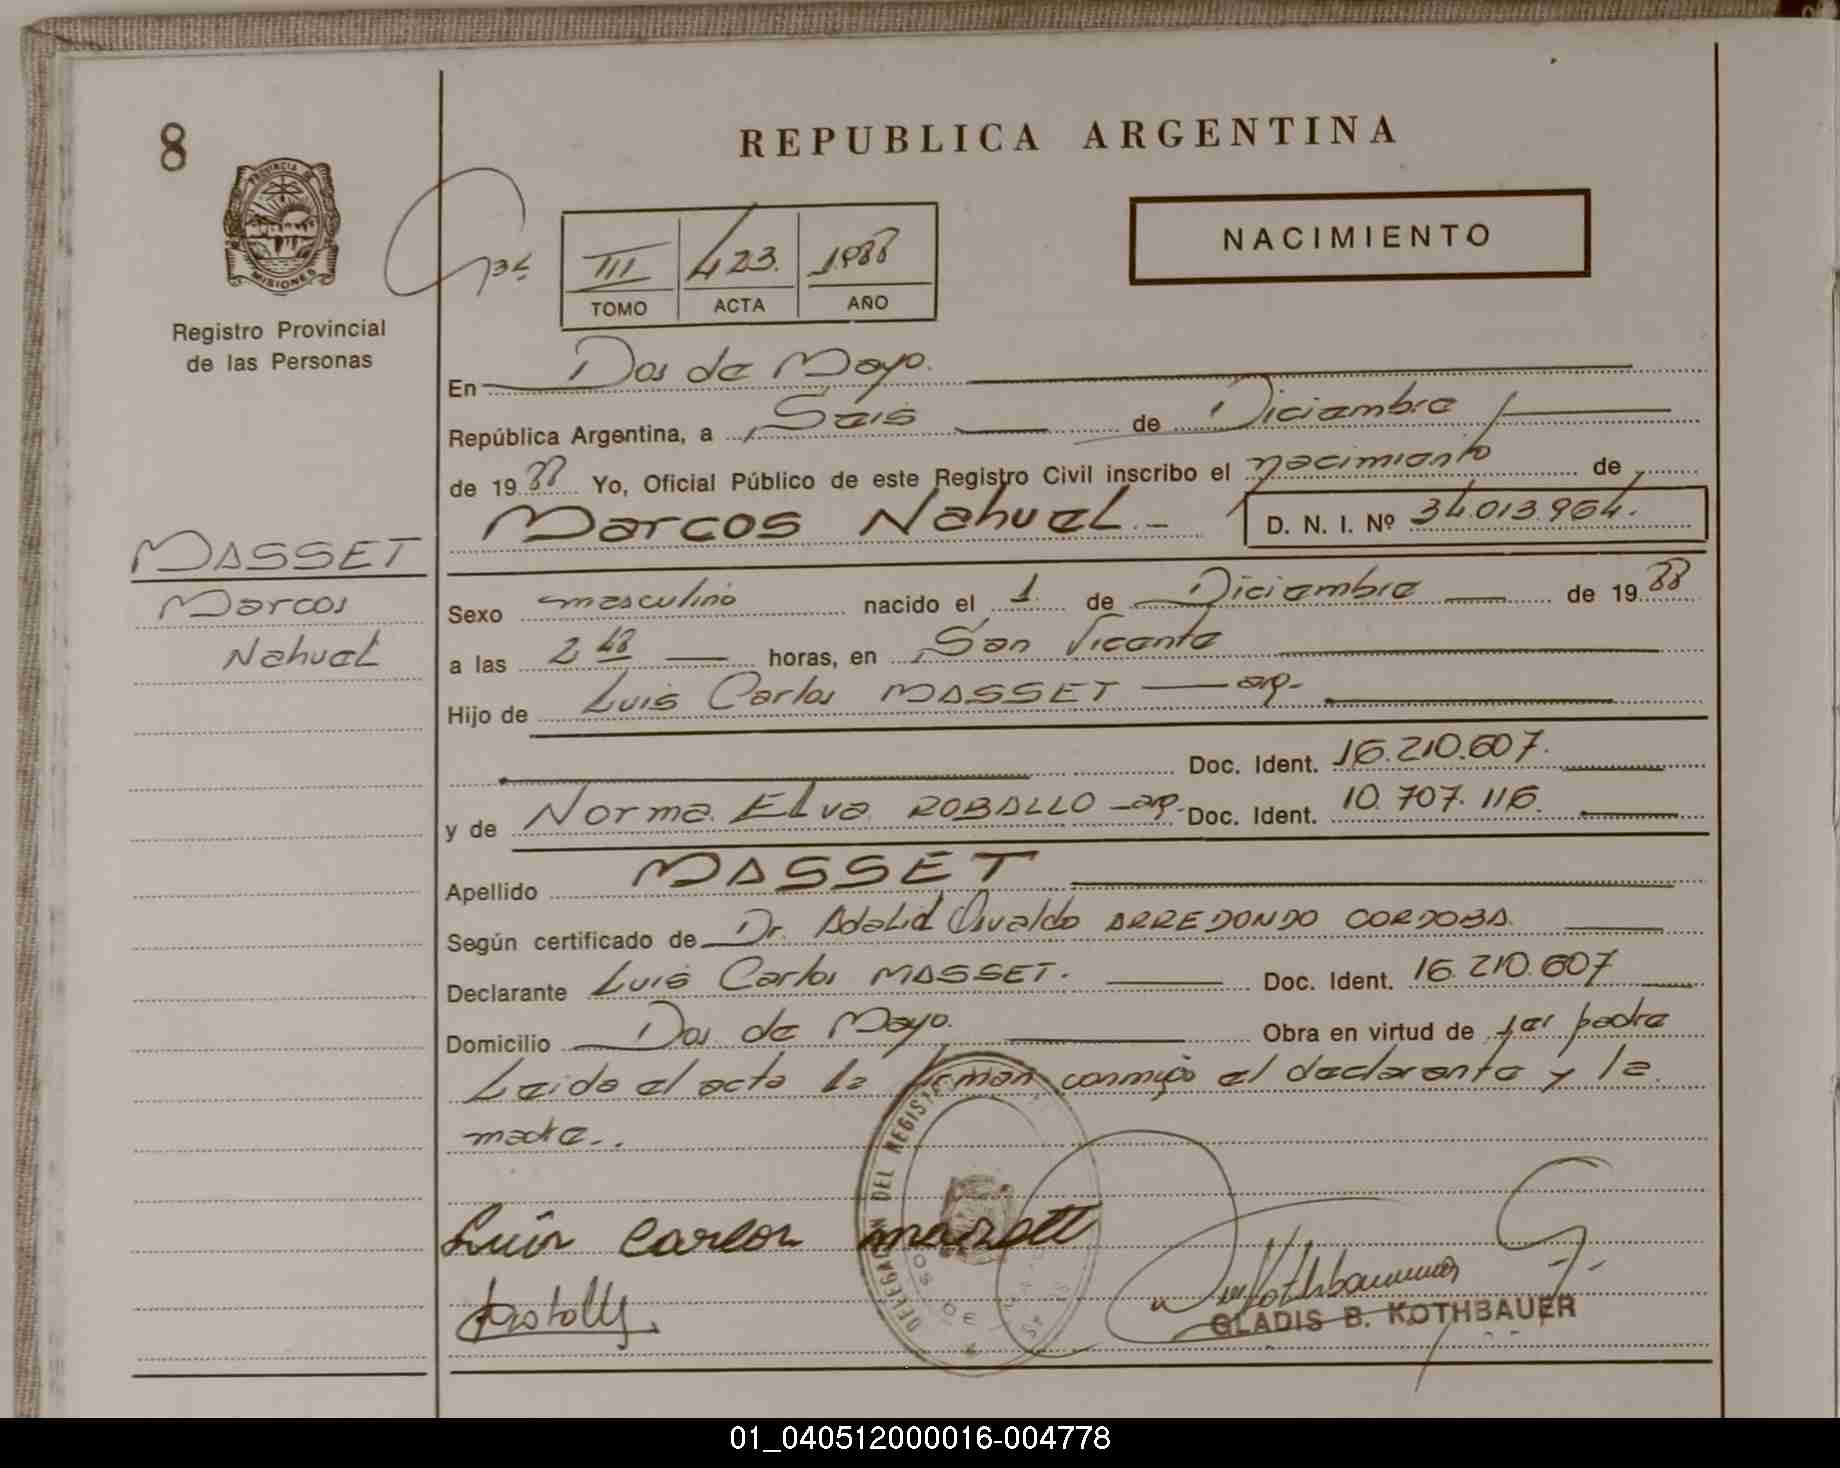 8
REPUBLICA ARGENTINA
PROVINCIA DE MISIONES
Registro Provincial
de las Personas
III 423. 1988
TOMO ACTA AÑO
NACIMIENTO
En Dos de Mayo.
República Argentina, a Seis de Diciembre
de 1988 Yo, Oficial Público de este Registro Civil inscribo el nacimiento de
Marcos Nahuel.- D. N. I. Nº 34.013.964.
MASSET
Marcos
Nahuel
Sexo masculino nacido el 1 de Diciembre de 1988
a las 2 48 horas, en San Vicente
Hijo de Luis Carlos MASSET - arg.
Doc. Ident. 16.210.607.
y de Norma Elva ROBALLO - arg. Doc. Ident. 10.707.116.
Apellido MASSET
Según certificado de Dr. Adalid Osvaldo ARREDONDO CORDOBA.
Declarante Luis Carlos MASSET. Doc. Ident. 16.210.607
Domicilio Dos de Mayo. Obra en virtud de ser padre
Leida el acta la firman conmigo el declarante y la
madre..
DELEGACION DEL REGISTRO
DOS DE
Luis Carlos
GLADIS B. KOTHBAUER
01_040512000016-004778